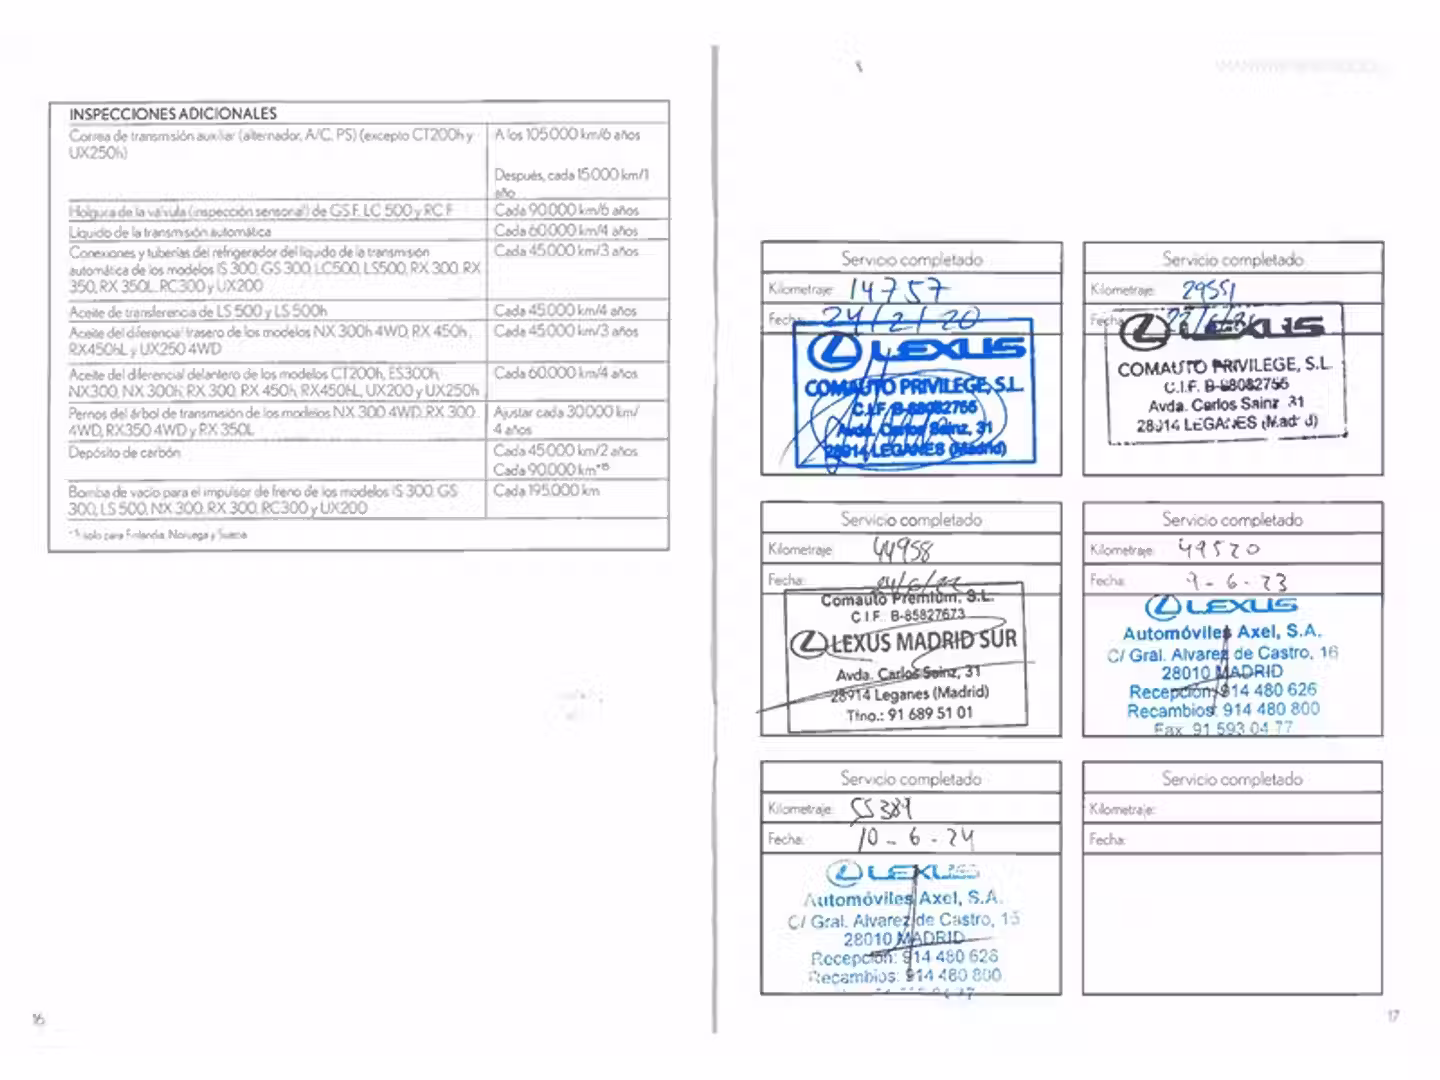 INSPECCIONES ADICIONALES
Correa de transmisión auxiliar (alternador, A/C, PS) (excepto CT200h y UX250h)
A los 105.000 km/6 años
Después, cada 15.000 km/1 año
Holgura de la válvula (inspección sensorial) de GS F, LC 500 y RC F
Cada 90.000 km/6 años
Líquido de la transmisión automática
Cada 60.000 km/4 años
Conexiones y tuberías del refrigerador del líquido de la transmisión
automática de los modelos IS 300, GS 300, LC500, LS500, RX 300, RX
350, RX 350L, RC300 y UX200
Cada 45.000 km/3 años
Aceite de transferencia de LS 500 y LS 500h
Cada 45.000 km/4 años
Aceite del diferencial trasero de los modelos NX 300h 4WD, RX 450h,
RX450hL y UX250 4WD
Cada 45.000 km/3 años
Aceite del diferencial delantero de los modelos CT200h, ES300h,
NX300, NX 300h, RX 300, RX 450h, RX450hL, UX200 y UX250h
Cada 60.000 km/4 años
Pernos del árbol de transmisión de los modelos NX 300 4WD, RX 300
4WD, RX350 4WD y RX 350L
Ajustar cada 30.000 km/
4 años
Depósito de carbón
Cada 45.000 km/2 años
Cada 90.000 km
Bomba de vacío para el impulsor de freno de los modelos IS 300, GS
300, LS 500, NX 300, RX 300, RC300 y UX200
Cada 195.000 km
solo para Finlandia, Noruega y Suecia
16
Servicio completado
Kilometraje: 14757
Fecha: 24/2/20
LEXUS
COMAUTO PRIVILEGE, S.L.
C.I.F. B-88082755
Avda. Carlos Sainz, 31
28914 LEGANES (Madrid)
Servicio completado
Kilometraje: 29551
Fecha:
LEXUS
COMAUTO PRIVILEGE, S.L.
C.I.F. B-88082755
Avda. Carlos Sainz 31
28914 LEGANES (Madrid)
Servicio completado
Kilometraje: 44958
Fecha:
Comauto Premium, S.L.
C I F. B-85827673
LEXUS MADRID SUR
Avda. Carlos Sainz, 31
28914 Leganes (Madrid)
Tfno.: 91 689 51 01
Servicio completado
Kilometraje: 49520
Fecha: 9-6-23
LEXUS
Automóviles Axel, S.A.
C/ Gral. Alvarez de Castro, 16
28010 MADRID
Recepción: 914 480 626
Recambios: 914 480 800
Fax 91 593 04 77
Servicio completado
Kilometraje: 55389
Fecha: 10-6-24
LEXUS
Automóviles Axel, S.A.
C/ Gral. Alvarez de Castro,
28010 MADRID
Recepción: 914 480 626
Recambios: 914 480 800
Servicio completado
Kilometraje:
Fecha:
17